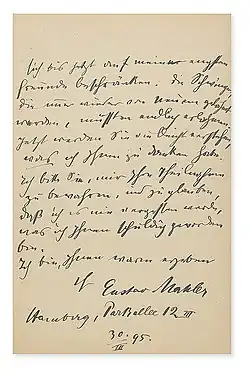 sich bis jetzt auf meine engsten
Freunde beschränken. Die Schwingen
die immer wieder von neuem gelähmt
werden, müssten endlich erlahmen.
Jetzt werden Sie vielleicht verstehen,
was ich Ihnen zu danken habe.
Ich bitte Sie, mir Ihre
zu bewahren, und zu glauben,
daß ich es nie vergessen werde,
was ich Ihnen schuldig geworden
bin.
Ich bin, Ihnen wahren ergeben
Gustav Mahler
Hamburg, Parkallee 12 III
30. 95.
III